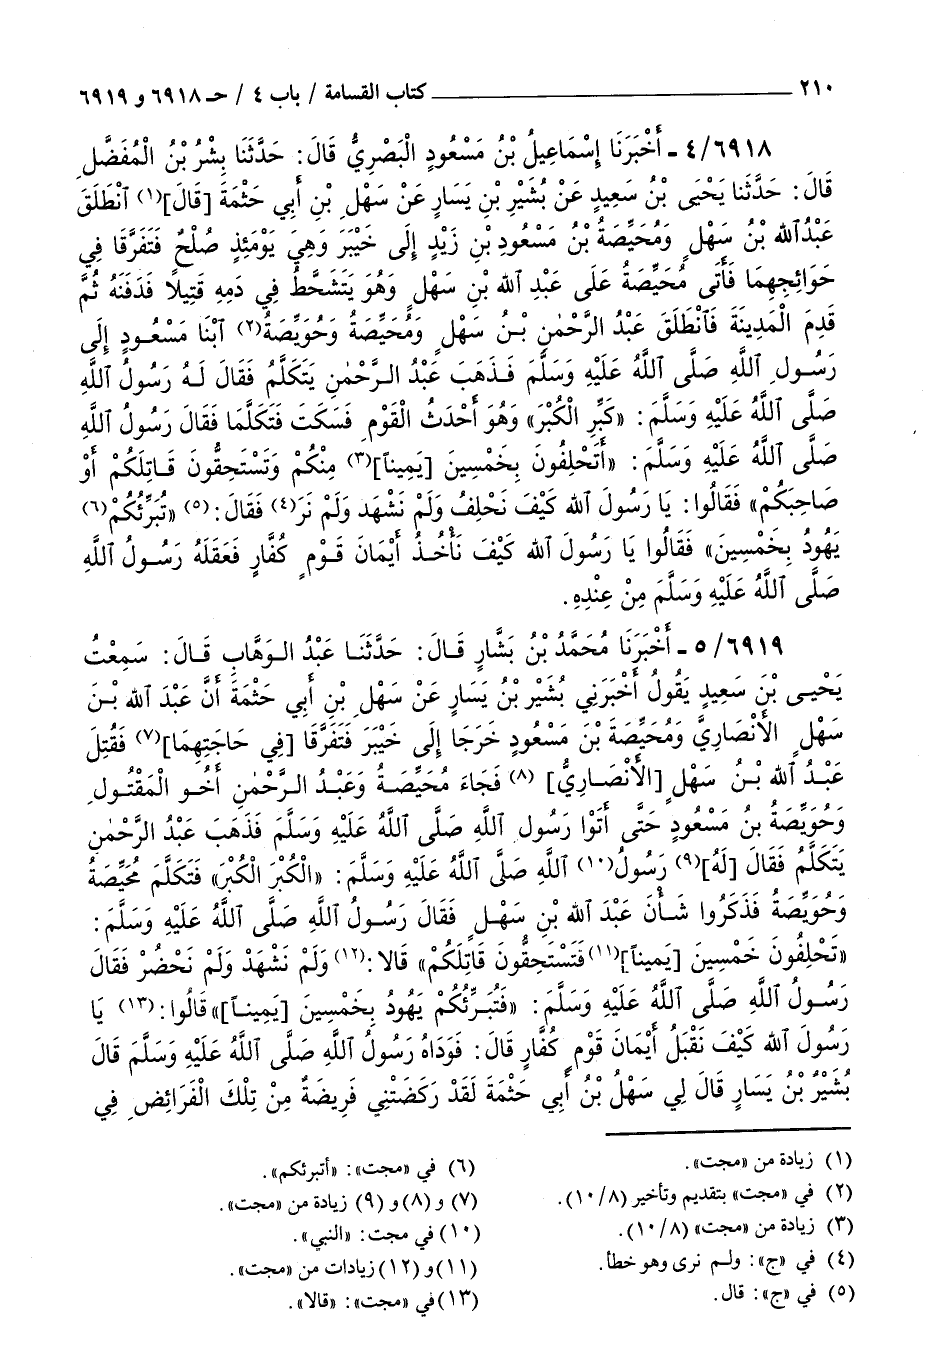 ٢١٠ ـــــــــ كتاب القسامة / باب ٤ / حـ ٦٩١٨ و ٦٩١٩
٤/٦٩١٨ ـ أَخْبَرَنَا إِسْمَاعِيلُ بْنُ مَسْعُودٍ الْبَصْرِيُّ قَالَ: حَدَّثَنَا بِشْرُ بْنُ الْمُفَضَّلِ
قَالَ: حَدَّثَنا يَحْيَى بْنُ سَعِيدٍ عَنْ بُشَيْرِ بْنِ يَسَارٍ عَنْ سَهْلِ بْنِ أَبِي حَثْمَةَ [قَالَ](١) ٱنْطَلَقَ
عَبْدُالله بْنُ سَهْلٍ وَمُحَيِّصَةُ بْنُ مَسْعُودِ بْنِ زَيْدٍ إِلَى خَيْبَرَ وَهِيَ يَوْمَئِذٍ صُلْحٌ فَتَفَرَّقَا فِي
حَوَائِجِهِمَا فَأَتَى مُحَيِّصَةُ عَلَى عَبْدِ الله بْنِ سَهْلٍ وَهُوَ يَتَشَحَّطُ فِي دَمِهِ قَتِيلاً فَدَفَنَهُ ثُمَّ
قَدِمَ الْمَدِينَةَ فَٱنْطَلَقَ عَبْدُ الرَّحْمٰنِ بْنُ سَهْلٍ وَمُحَيِّصَةُ وَحُوَيِّصَةُ(٢) ٱبْنَا مَسْعُودٍ إِلَى
رَسُولِ ٱللَّهِ صَلَّى ٱللَّهُ عَلَيْهِ وَسَلَّمَ فَذَهَبَ عَبْدُ الرَّحْمٰنِ يَتَكَلَّمُ فَقَالَ لَهُ رَسُولُ ٱللَّهِ
صَلَّى ٱللَّهُ عَلَيْهِ وَسَلَّمَ: «كَبِّرِ الْكُبْرَ» وَهُوَ أَحْدَثُ الْقَوْمِ فَسَكَتَ فَتَكَلَّمَا فَقَالَ رَسُولُ ٱللَّهِ
صَلَّى ٱللَّهُ عَلَيْهِ وَسَلَّمَ: «أَتَحْلِفُونَ بِخَمْسِينَ [يَمِيناً](٣) مِنْكُمْ وَتَسْتَحِقُّونَ قَاتِلَكُمْ أَوْ
صَاحِبَكُمْ» فَقَالُوا: يَا رَسُولَ الله كَيْفَ نَحْلِفُ وَلَمْ نَشْهَد وَلَمْ نَرَ(٤) فَقَالَ:(٥) «تُبَرِّئُكُمْ(٦)
يَهُودُ بِخَمْسِينَ» فَقَالُوا يَا رَسُولَ الله كَيْفَ نَأْخُذُ أَيْمَانَ قَوْمٍ كُفَّارٍ فَعَقَلَهُ رَسُولُ ٱللَّهِ
صَلَّى ٱللَّهُ عَلَيْهِ وَسَلَّمَ مِنْ عِنْدِهِ.
٥/٦٩١٩ ـ أَخْبَرَنَا مُحَمَّدُ بْنُ بَشَّارٍ قَالَ: حَدَّثَنَا عَبْدُ الوَهَّابِ قَالَ: سَمِعْتُ
يَحْيى بْنَ سَعِيدٍ يَقُولُ أَخْبَرَنِي بُشَيْرُ بْنُ يَسَارٍ عَنْ سَهْلِ بْنِ أَبِي حَثْمَةَ أَنَّ عَبْدَ الله بْنَ
سَهْلٍ الأَنْصَارِيَّ وَمُحَيِّصَةَ بْنَ مَسْعُودٍ خَرَجَا إِلَى خَيْبَرَ فَتَفَرَّقَا [فِي حَاجَتِهِمَا](٧) فَقُتِلَ
عَبْدُ الله بْنُ سَهْلٍ [الأَنْصَارِيُّ] (٨) فَجَاءَ مُحَيِّصَةُ وَعَبْدُ الرَّحْمٰنِ أَخُو الْمَقْتُولِ
وَحُوَيِّصَةُ بنُ مَسْعُودٍ حَتَّى أَتَوْا رَسُولِ ٱللَّهِ صَلَّى ٱللَّهُ عَلَيْهِ وَسَلَّمَ فَذَهَبَ عَبْدُ الرَّحْمٰنِ
يَتَكَلَّمُ فَقَالَ [لَهُ](٩) رَسُولُ(١٠) ٱللَّهِ صَلَّى ٱللَّهُ عَلَيْهِ وَسَلَّمَ: «الْكُبْرَ الْكُبْرَ» فَتَكَلَّم مُحَيِّصَةُ
وَحُوَيِّصَةُ فَذَكَرُوا شَأْنَ عَبْدَ الله بْنِ سَهْلٍ فَقَالَ رَسُولُ ٱللَّهِ صَلَّى ٱللَّهُ عَلَيْهِ وَسَلَّمَ:
«تَحْلِفُونَ خَمْسِينَ [يَمِيناً](١١)فَتَسْتَحِقُّونَ قَاتِلَكُمْ» قَالا:(١٢) وَلَمْ نَشْهَدْ وَلَمْ نَحْضُرْ فَقَالَ
رَسُولُ ٱللَّهِ صَلَّى ٱللَّهُ عَلَيْهِ وَسَلَّمَ: «فَتُبَرِّئُكُمْ يَهُودُ بِخَمْسِينَ [يَمِيناً]» قَالُوا:(١٣) يَا
رَسُولَ الله كَيْفَ نَقْبَلُ أَيْمَانَ قَوْمٍ كُفَّارٍ قَالَ: فَوَدَاهُ رَسُولُ ٱللَّهِ صَلَّى ٱللَّهُ عَلَيْهِ وَسَلَّمَ قَالَ
بُشَيْرُ بْنُ يَسَارٍ قَالَ لِي سَهْلُ بْنُ أَبِي حَثْمَةَ لَقَدْ رَكَضَتْنِي فَرِيضَةٌ مِنْ تِلْكَ الْفَرَائِضِ فِي
(١) زيادة من «مجت».
(٢) في «مجت» بتقديم وتأخير (١٠/٨).
(٣) زيادة من «مجت» (١٠/٨).
(٤) في «ج»: ولم نرى وهو خطأ.
(٥) في «ج»: قال.
(٦) في «مجت»: «أتبرئكم».
(٧) و(٨) و(٩) زيادة من «مجت».
(١٠) في مجت: «النبي».
(١١) و(١٢) زيادات من «مجت».
(١٣) في «مجت»: «قالا».